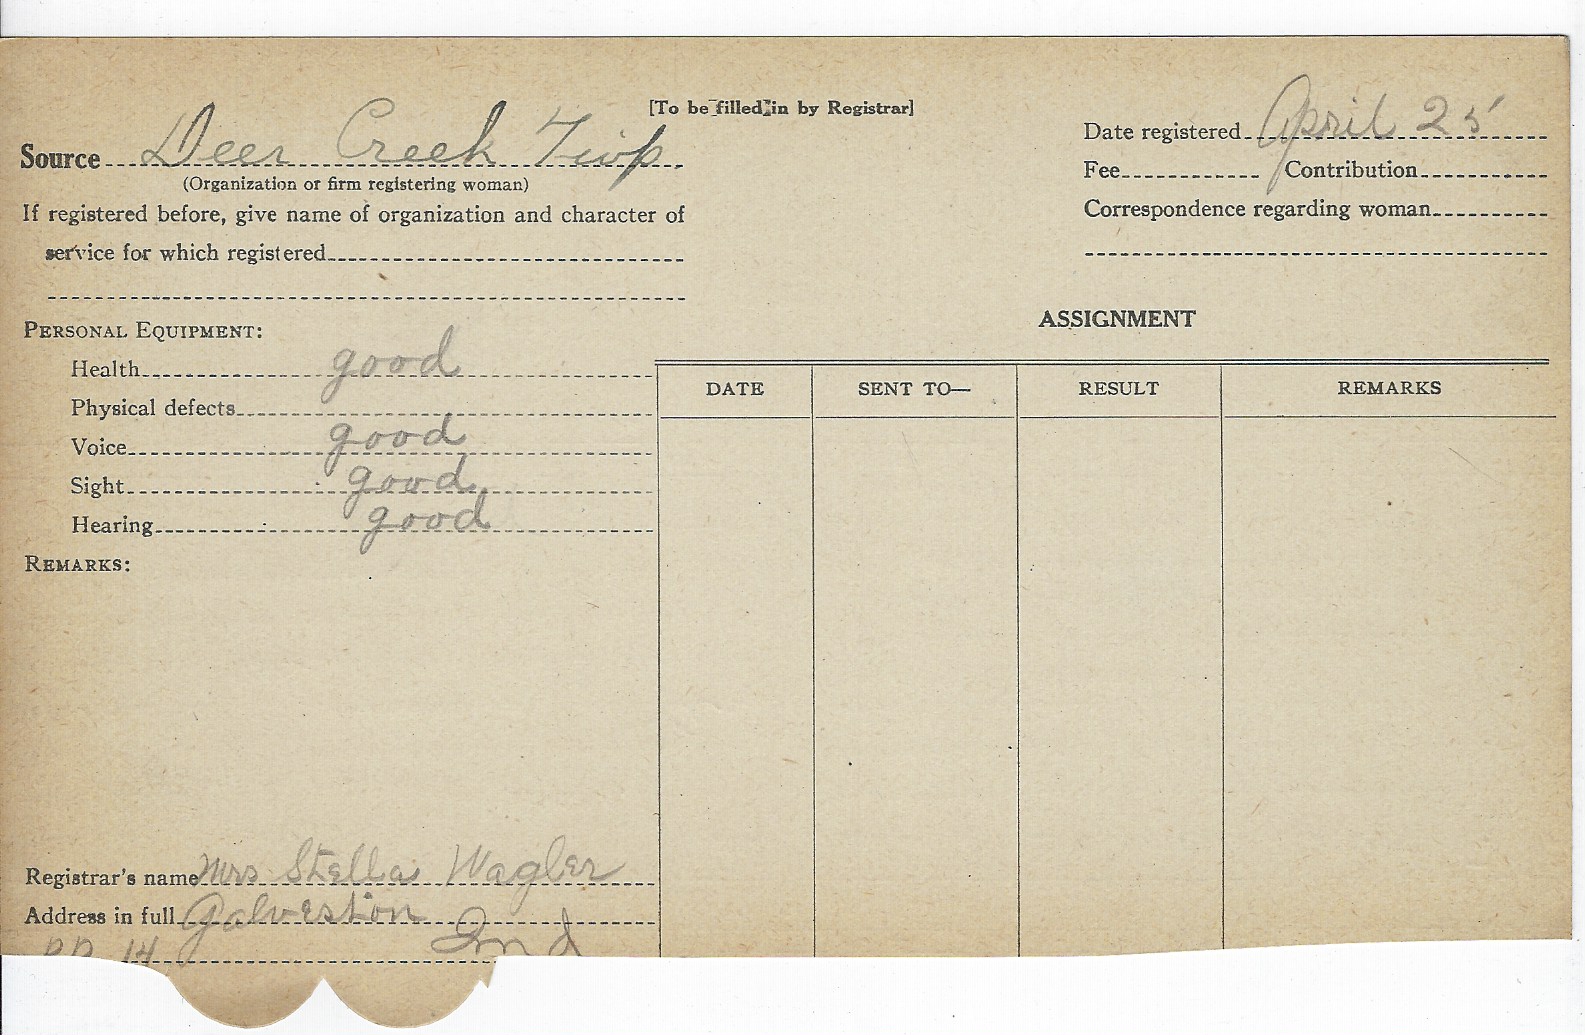 [To be filled in by Registrar]
Source Deer Creek Twp
(Organization or firm registering woman)
If registered before, give name of organization and character of
service for which registered
Date registered April 25
Fee Contribution
Correspondence regarding woman
PERSONAL EQUIPMENT:
Health good
Physical defects
Voice good
Sight good
Hearing good
REMARKS:
ASSIGNMENT
DATE SENT TO— RESULT REMARKS
Registrar's name Mrs Stella Wagler
Address in full Galveston
Ind